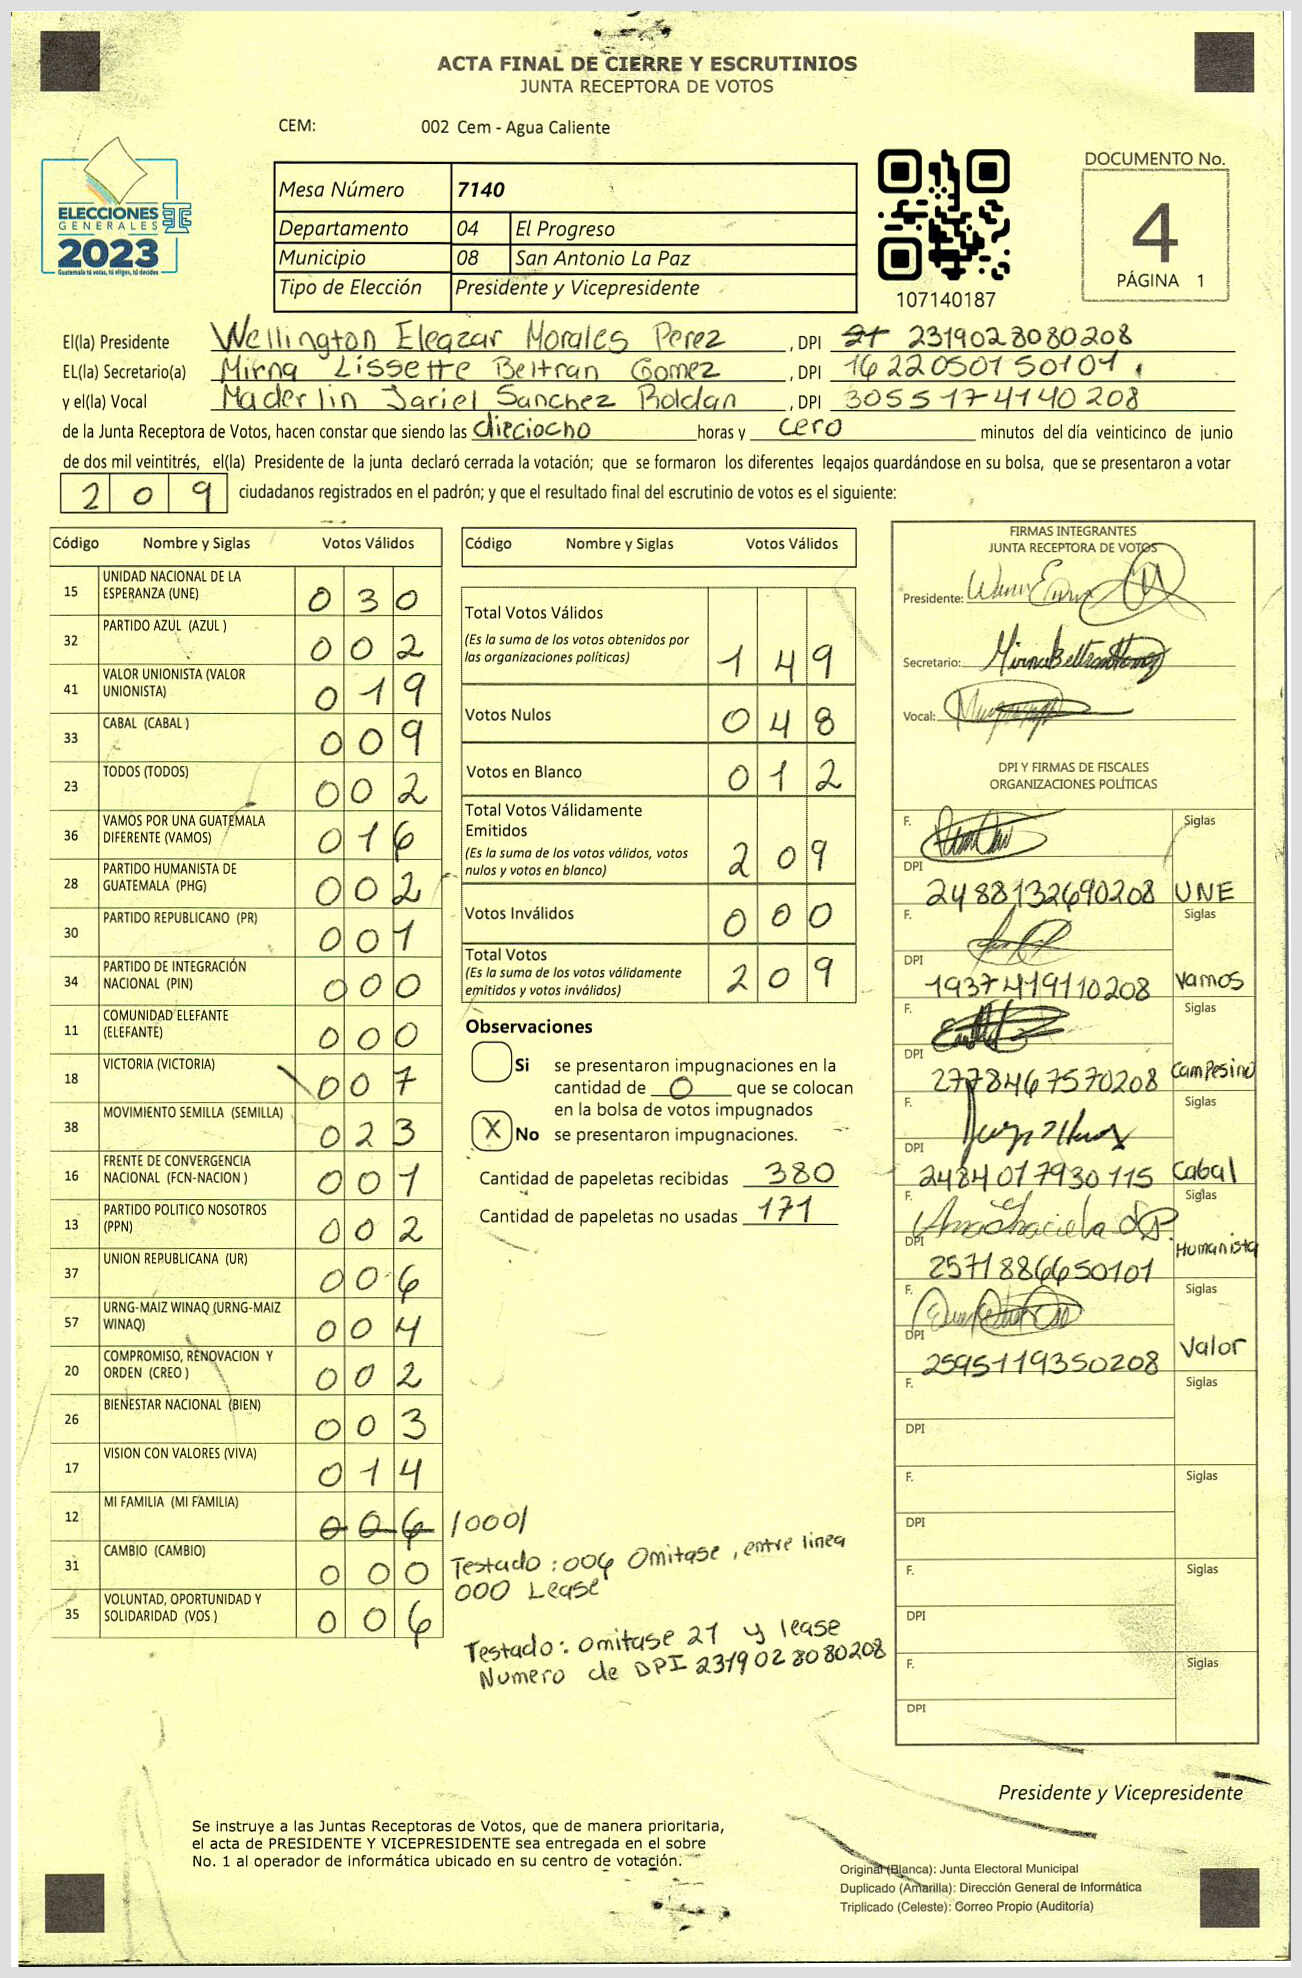 ACTA FINAL DE CIERRE Y ESCRUTINIOS
JUNTA RECEPTORA DE VOTOS
CEM: 002 Cem - Agua Caliente
ELECCIONES
GENERALES
2023
Guatemala tú votas, tú eliges, tú decides
Mesa Número 7140
Departamento 04 El Progreso
Municipio 08 San Antonio La Paz
Tipo de Elección Presidente y Vicepresidente
107140187
DOCUMENTO No.
4
PÁGINA 1
El(la) Presidente Wellington Eleazar Morales Perez, DPI 21 2319028080208
EL(la) Secretario(a) Mirna Lissette Beltran Gomez, DPI 1622050150101
y el(la) Vocal Maderlin Jariel Sanchez Roldan, DPI 3055174140208
de la Junta Receptora de Votos, hacen constar que siendo las dieciocho horas y cero minutos del día veinticinco de junio
de dos mil veintitrés, el(la) Presidente de la junta declaró cerrada la votación; que se formaron los diferentes legajos guardándose en su bolsa, que se presentaron a votar
209 ciudadanos registrados en el padrón; y que el resultado final del escrutinio de votos es el siguiente:
Código Nombre y Siglas Votos Válidos
15 UNIDAD NACIONAL DE LA ESPERANZA (UNE) 030
32 PARTIDO AZUL (AZUL ) 002
41 VALOR UNIONISTA (VALOR UNIONISTA) 019
33 CABAL (CABAL ) 009
23 TODOS (TODOS) 002
36 VAMOS POR UNA GUATEMALA DIFERENTE (VAMOS) 016
28 PARTIDO HUMANISTA DE GUATEMALA (PHG) 002
30 PARTIDO REPUBLICANO (PR) 001
34 PARTIDO DE INTEGRACIÓN NACIONAL (PIN) 000
11 COMUNIDAD ELEFANTE (ELEFANTE) 000
18 VICTORIA (VICTORIA) 007
38 MOVIMIENTO SEMILLA (SEMILLA) 023
16 FRENTE DE CONVERGENCIA NACIONAL (FCN-NACION ) 001
13 PARTIDO POLITICO NOSOTROS (PPN) 002
37 UNION REPUBLICANA (UR) 006
57 URNG-MAIZ WINAQ (URNG-MAIZ WINAQ) 004
20 COMPROMISO, RENOVACION Y ORDEN (CREO ) 002
26 BIENESTAR NACIONAL (BIEN) 003
17 VISION CON VALORES (VIVA) 014
12 MI FAMILIA (MI FAMILIA) 006 /000/
31 CAMBIO (CAMBIO) 000
35 VOLUNTAD, OPORTUNIDAD Y SOLIDARIDAD (VOS ) 006
Código Nombre y Siglas Votos Válidos
Total Votos Válidos 149
(Es la suma de los votos obtenidos por
las organizaciones políticas)
Votos Nulos 048
Votos en Blanco 012
Total Votos Válidamente
Emitidos 209
(Es la suma de los votos válidos, votos
nulos y votos en blanco)
Votos Inválidos 000
Total Votos 209
(Es la suma de los votos válidamente
emitidos y votos inválidos)
Observaciones
Si se presentaron impugnaciones en la
cantidad de 0 que se colocan
en la bolsa de votos impugnados
X No se presentaron impugnaciones.
Cantidad de papeletas recibidas 380
Cantidad de papeletas no usadas 171
Testado: 006 Omitase, entre linea
000 Lease
Testado: omitase 21 y lease
Numero de DPI 2319028080208
FIRMAS INTEGRANTES
JUNTA RECEPTORA DE VOTOS
Presidente:
Secretario:
Vocal:
DPI Y FIRMAS DE FISCALES
ORGANIZACIONES POLÍTICAS
F. Siglas
DPI 2488132690208 UNE
F. Siglas
DPI 1937419110208 Vamos
F. Siglas
DPI 2778467570208 Campesino
F. Siglas
DPI 2484017930115 Cabal
F. Siglas
DPI 2571886650101 Humanista
F. Siglas
DPI 2595119350208 Valor
F. Siglas
DPI
F. Siglas
DPI
F. Siglas
DPI
F. Siglas
DPI
Presidente y Vicepresidente
Se instruye a las Juntas Receptoras de Votos, que de manera prioritaria,
el acta de PRESIDENTE Y VICEPRESIDENTE sea entregada en el sobre
No. 1 al operador de informática ubicado en su centro de votación.
Original (Blanca): Junta Electoral Municipal
Duplicado (Amarilla): Dirección General de Informática
Triplicado (Celeste): Correo Propio (Auditoría)